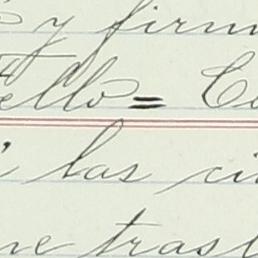 y firm
ello = C
las ci
ue tras